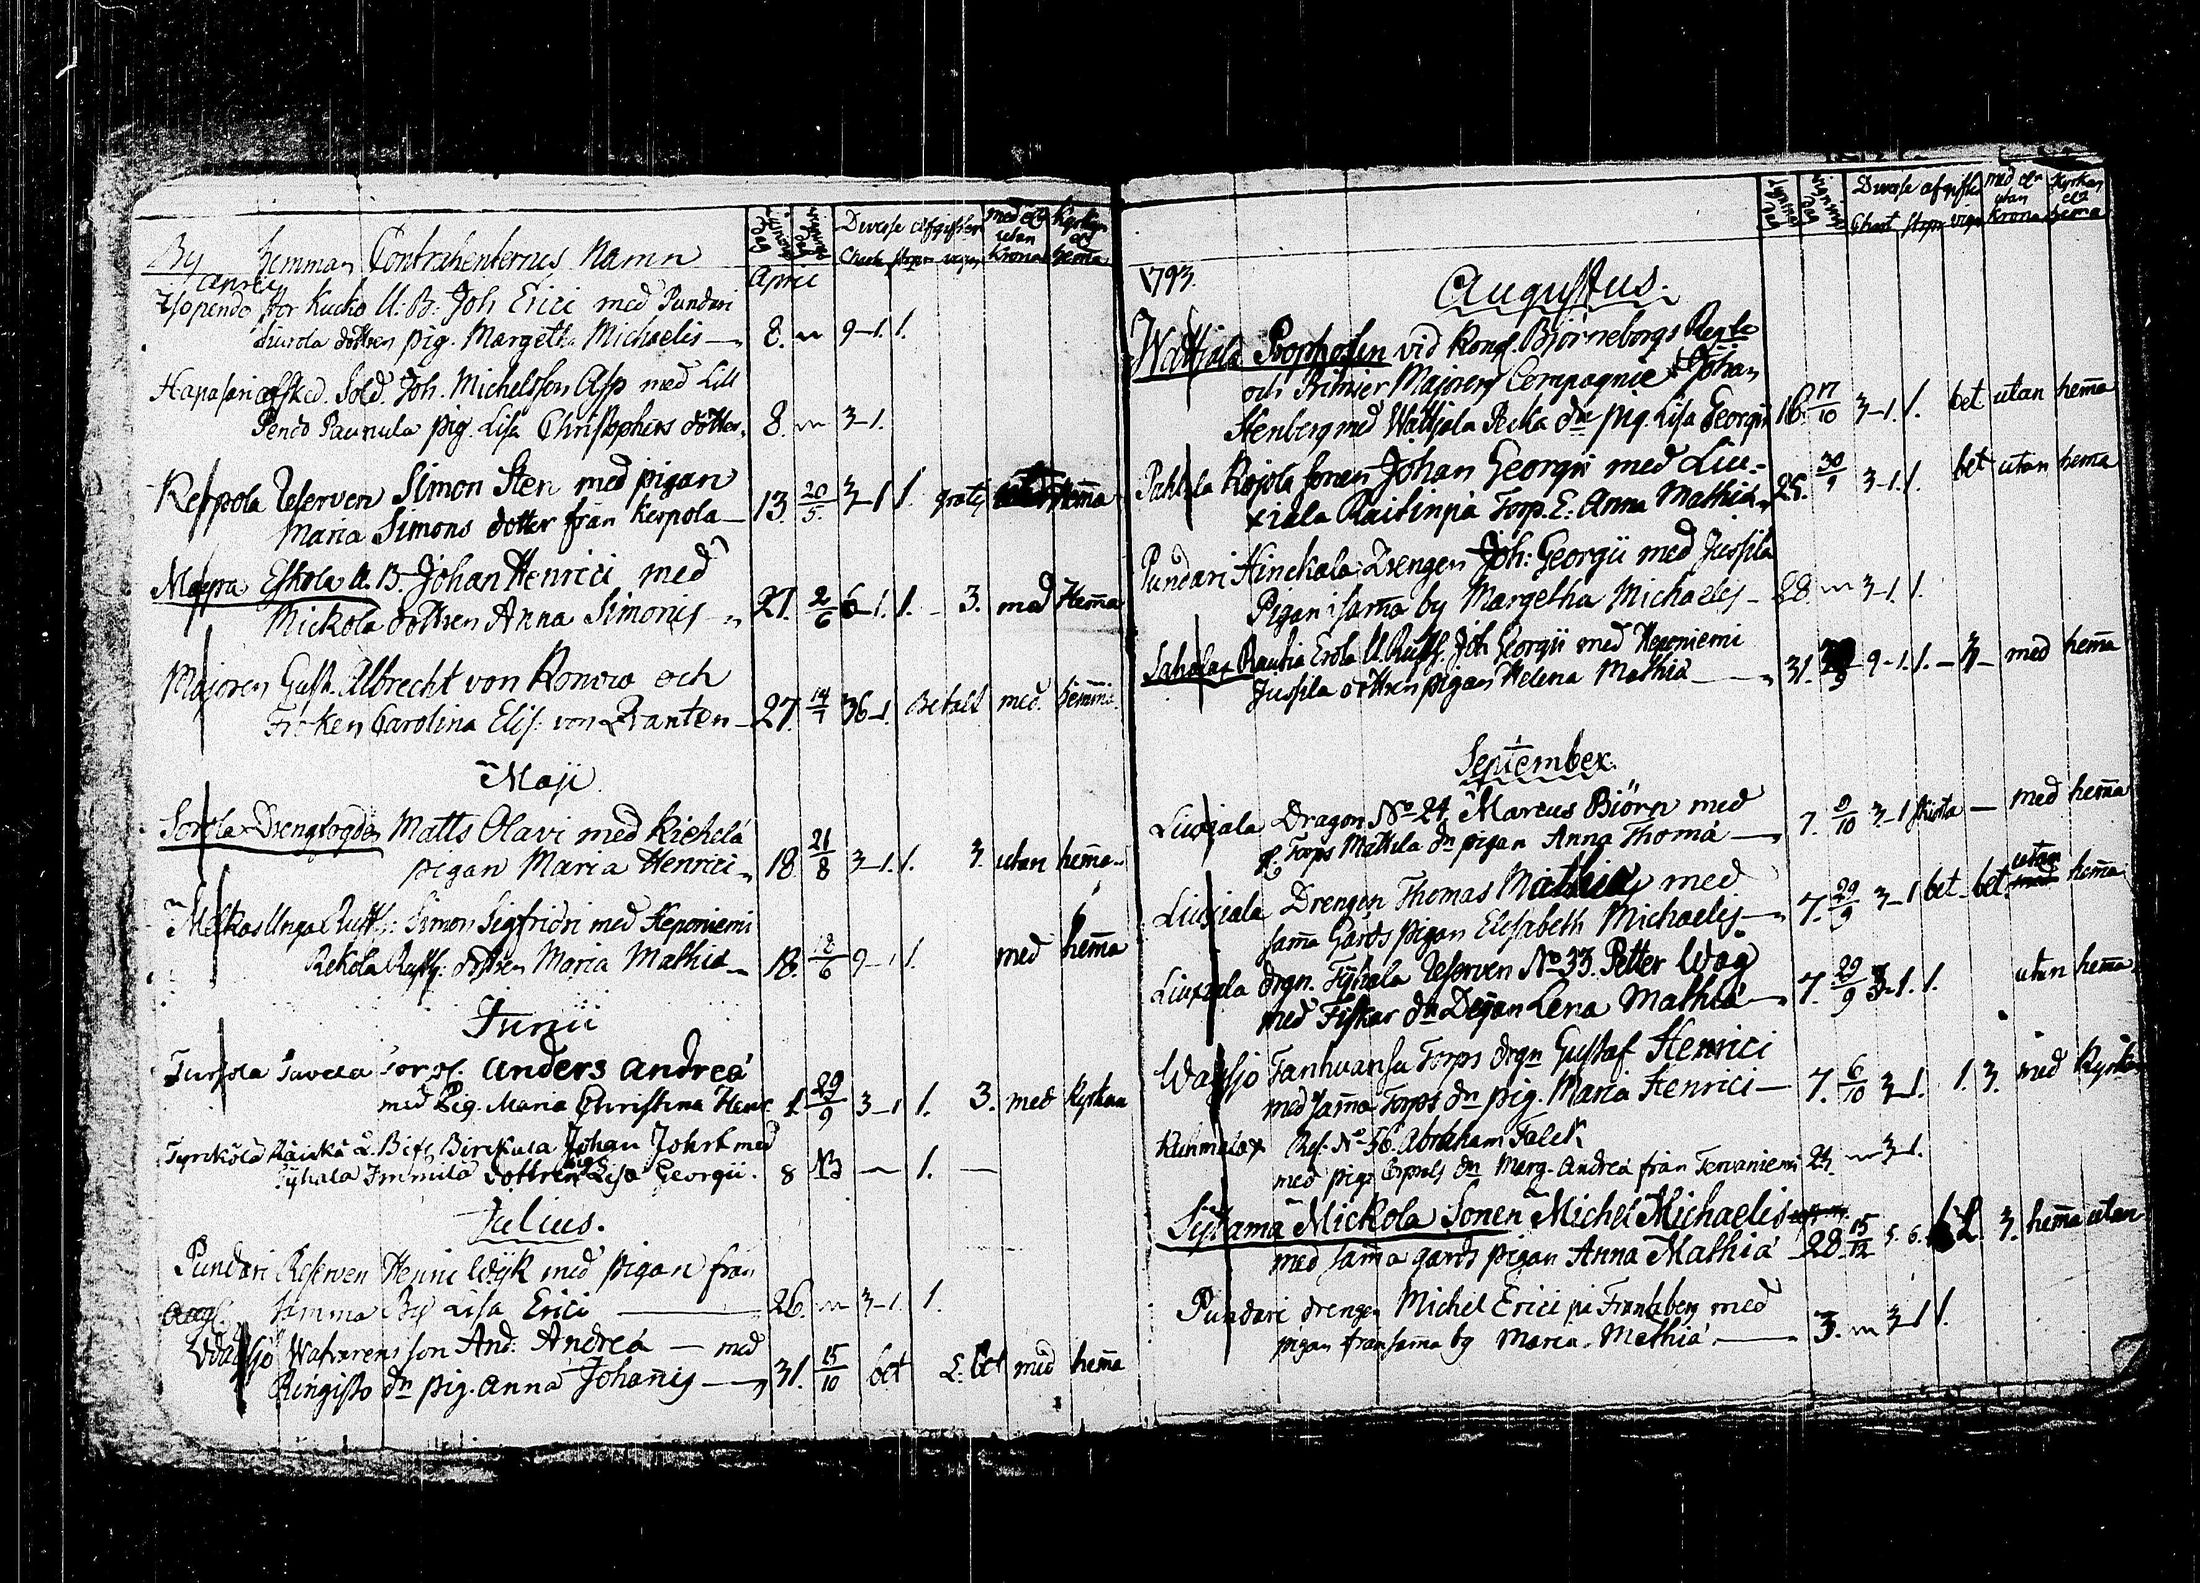 By Hemman Contrahenternes Namn Diverse afgifter med el utan Krona Kyrkan el hemma
April
Isopendo stor Kucko U: B: Joh Erici med Pundari
dottren pig. Margetha Michaelis 8. 9-1. 1.
Hapasari afsked. Sold. Joh. Michelsson Asp med Lill
Pendo Paunula pig. Lisa Christophers dotter 8. 3-1.
Kerpola Reserven Simon Sten med pigan
Maria Simons dotter från Kerpola 13. 20/5. 3-1 1. gratis hemma
Maspra Eskola U. B. Johan Henrici med
Mickola dottren Anna Simonis 21. 2/6 6-1. 1. - 3. med Hemma
Majoren Gust. Albrecht von Konow och
Fröken Carolina Elis. von Qvanten 27. 14/7 36-1. Betalt med. hemma
Maji
Sorola Drengfogden Matts Olavi med Kichela
pigan Maria Henrici 18. 21/8 3-1. 1. 3. utan hemma
Melkas Unga Rusth: Simon Sigfridri med Heponiemi
Rekola Rusth: dottren Maria Mathiæ 18. 18/6 9-1 1. med hemma
Junii
Turjola Tavela Torp. Anders Andreæ
med Pig. Maria Christina Henr. 1. 29/9 3-1 1. 3. med Kyrkan
Tyrikölä Räickä L. Birckala Johan Johst med
Tyhala Immila dottren pig Lisa Georgii. 8 - 1. -
Julius.
Pundari Reserven Henric Wijk med pigan från
samma By Lisa Erici 26. 3-1. 1.
Waljo Watvarens son And. Andreæ - med
Ringisto dn pig. Anna Johanis 31. 15/10 bet 2. bet med hemma
Diverse afgifter med el utan Krona Kyrkan el hemma
1793. Augustus.
Wattjala Proffosen vid Kongl. Björneborgs Regte
och Primier Majorens Compagnie Johan
Stenberg med Wattjala Pecka dn pig. Lisa Georgii 16. 17/10 3-1. 1. bet utan hemma
Pahkala Kojola sonen Johan Georgii med Liu-
xiala Raitinpä Torp. E. Anna Mathiæ 25. 30/9 3-1. 1. bet utan hema
Pundari Hinckala Drengen Joh: Georgii med Jussila
Pigan i sama by Margetha Michaelis 28. 3-1. 1.
Sahalax Rautia Erola U. Rusth. Joh Georgii med Heponiemi
Jussila dottren pigan Helena Mathiæ 31. 9-1. 1. - 3- med hema
September.
Liuxiala Dragon No 24, Marcus Biörn med
gl. Torps Mattila dn pigan Anna Thomæ 7. 9/10 3-1 - med hema
Liuxiala Drengen Thomas Mathiæ med
sama Gårds pigan Elisabeth Michaelis 7. 29/9 3-1 bet. bet. utan hema
Liuxiala drgn. Tyhala Reserven No 33. Petter Wåg
med Fiskar dn Dejan Lena Mathiæ 7. 29/9 3-1. 1. utan hema
Waljo Tanhuansu Torps drgn Gustaf Henrici
med sama Torps dn pig. Maria Henrici 7. 6/10 3-1. 1. 3. med Kyrkan
Kuhmalax Res. No 56. Abraham Falck
med pig. Corprals dn Marg. Andreæ från Tervaniemi 24. 3-1.
Sijtama Mickola Sonen Michel Michaelis
med sama gårds pigan Anna Mathiæ 28. 15/12 5. 6. 3. hema utan
Pundari drengen Michel Erici på Frantzberg med
pigan från sama by Maria Mathiæ 3. 3-1 1.